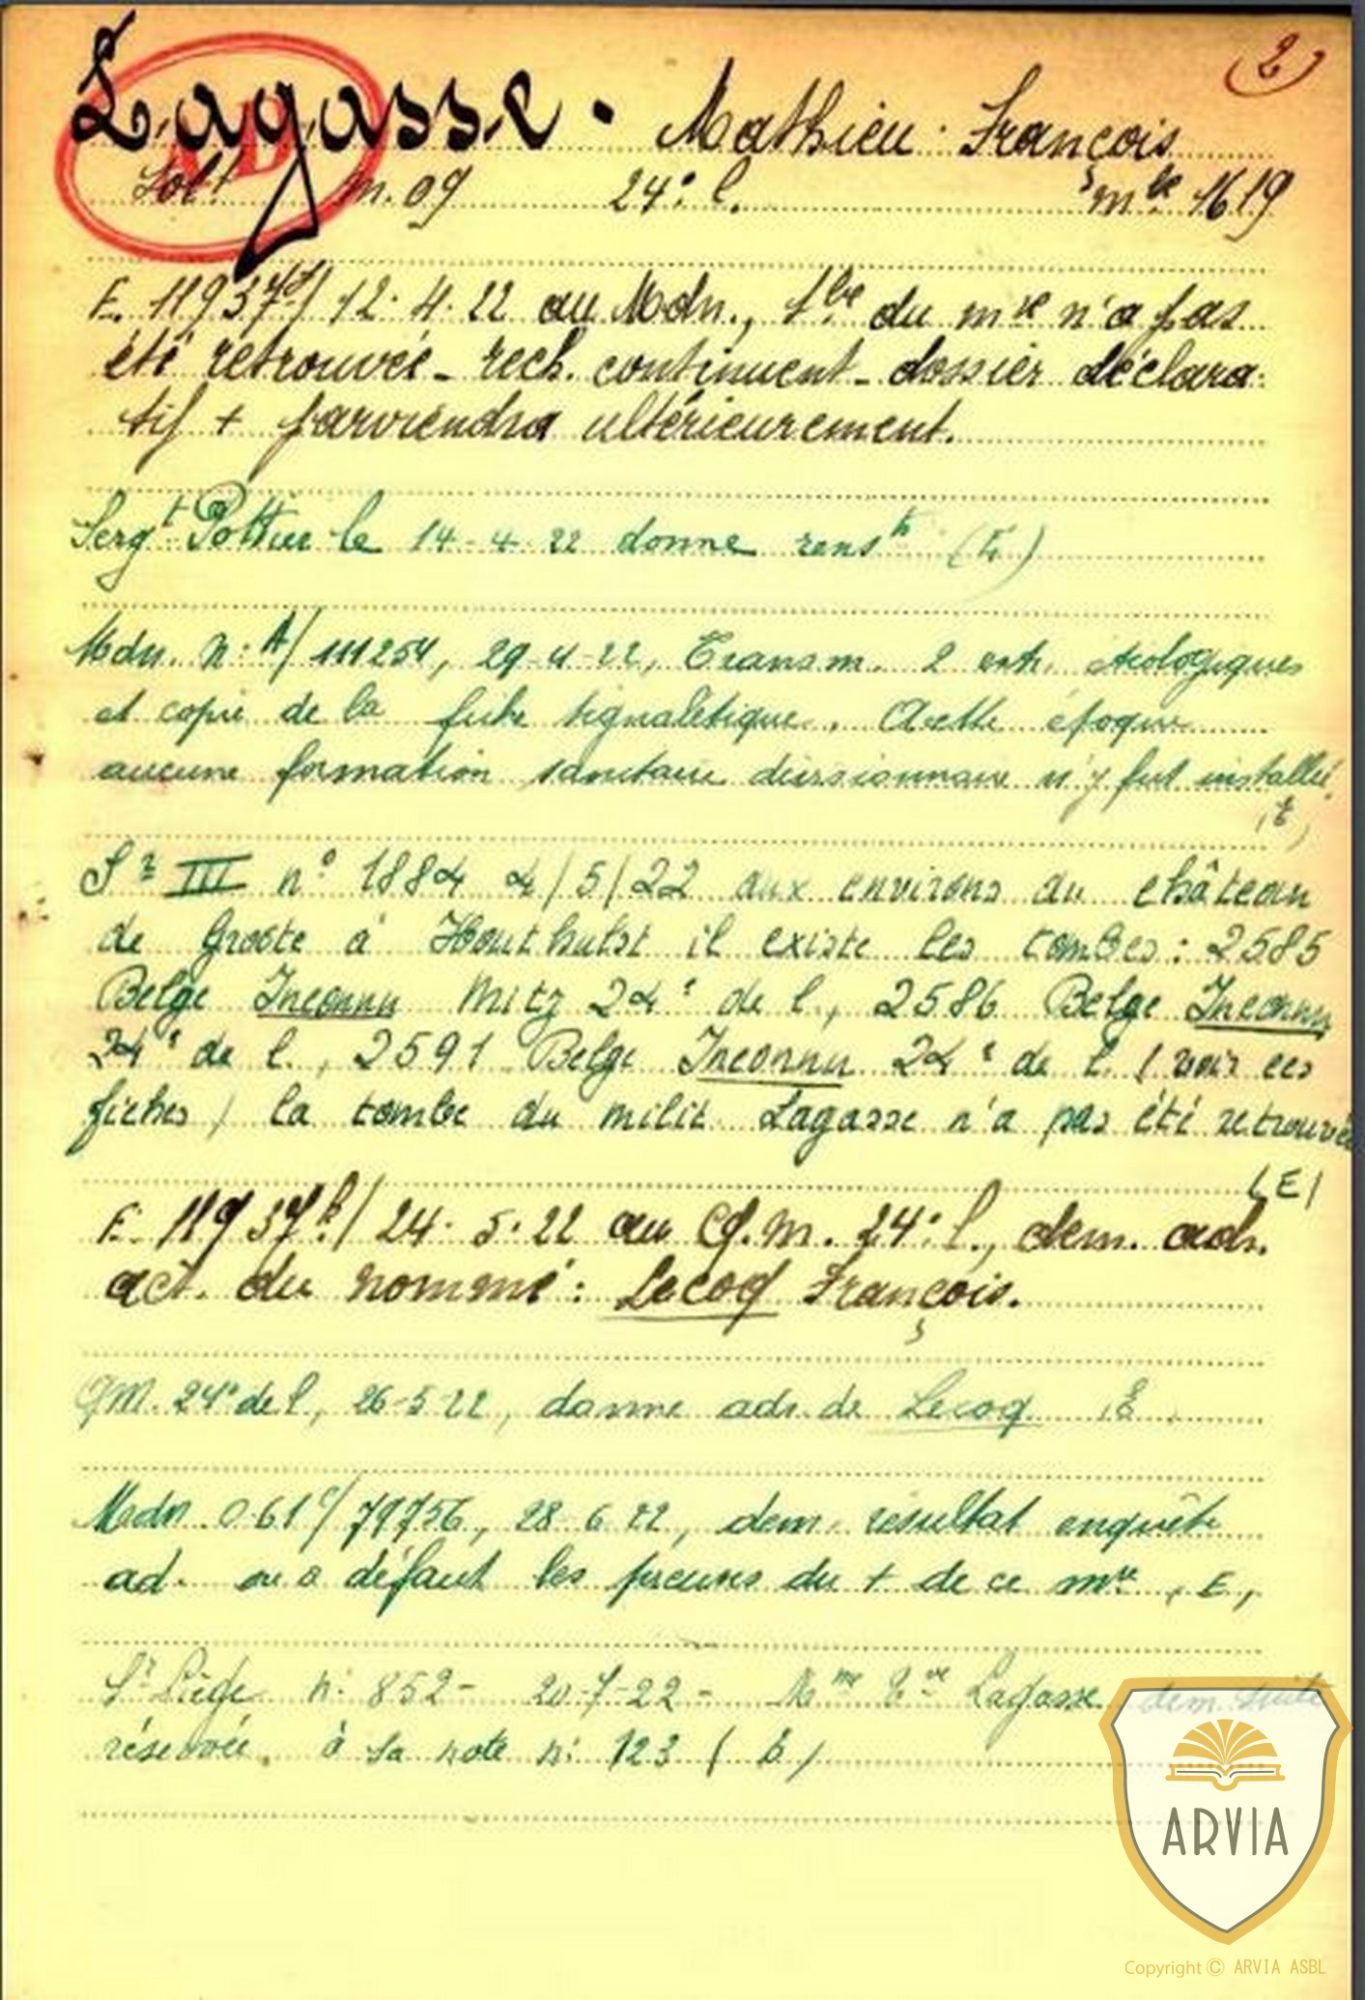 2
Lagasse. Mathieu François
Solt m. 09 24e l. mle 1619
E. 11937d/ 12.4.22 au Mdn., tbe du mre n'a pas
été retrouvée - rech. continuent - dossier déclara-
tif + parviendra ultérieurement.
Sergt Pottier le 14-4-22 donne renst (E)
Mdn. N: A/111254, 29-4-22, Transm. 2 extr.
et copie de la fiche signalétique. A cette époque
aucune formation sanitaire divisionnaire n'y fut installée.
(E)
Sr III n° 1884 4/5/22 aux environs du château
de Groote à Houthulst il existe les tombes: 2585
Belge Inconnu Mitz 24e de l., 2586 Belge Inconnu
24e de l., 2591 Belge Inconnu 24e de l. (voir ces
fiches) la tombe du milit. Lagasse n'a pas été retrouvée
(E)
E. 11937h/ 24.5.22 au Q.M. 24e l., dem. adr.
act. du nommé: Lecoq François.
QM. 24e de l, 26-5-22, donne adr. de Lecoq (E)
Mdn 061c/79756, 28-6-22, dem. résultat enquête
ad. ou à défaut les preuves du + de ce mre (E)
Sr Liège n: 852- 20-7-22- Mme Vve Lagasse dem. suite
réservée à sa note n: 123 (E)
ARVIA
Copyright © ARVIA ASBL